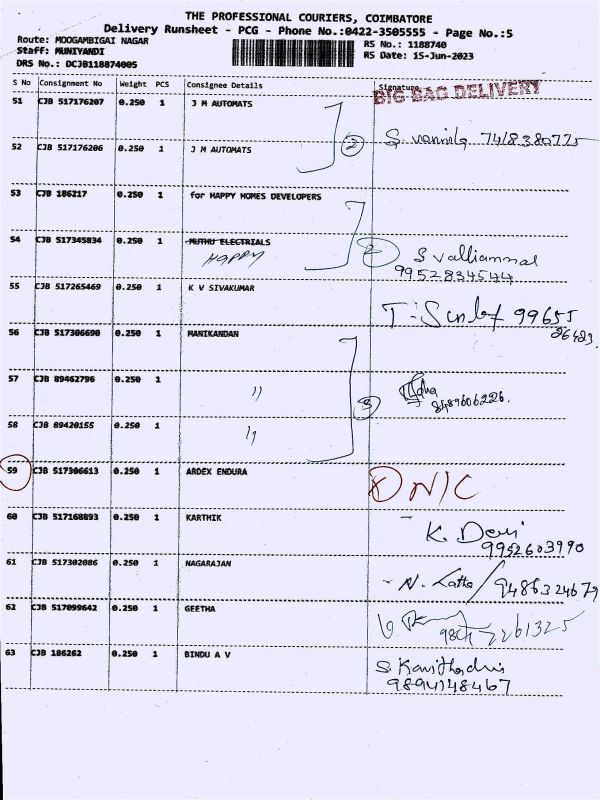 THE PROFESSIONAL COURIERS, COIMBATORE
Delivery Runsheet - PCG - Phone No.:0422-3505555 - Page No.:5
Route: MOOGAMBIGAI NAGAR RS No.: 1188740
Staff: MUNIYANDI RS Date: 15-Jun-2023
DRS No.: DCJB118874005
S No Consignment No Weight PCS Consignee Details Signature
BIG BAG DELIVERY
51 CJB 517176207 0.250 1 J M AUTOMATS
2 S. vannila 7418380775
52 CJB 517176206 0.250 1 J M AUTOMATS
53 CJB 186217 0.250 1 for HAPPY HOMES DEVELOPERS
54 CJB 517345834 0.250 1 MUTHU ELECTRIALS
HAPPY 2 S Valliammal
9952834544
55 CJB 517265469 0.250 1 K V SIVAKUMAR
99655
26423
56 CJB 517306690 0.250 1 MANIKANDAN
57 CJB 89462796 0.250 1
" 3 8489606226.
58 CJB 89420155 0.250 1
"
59 CJB 517306613 0.250 1 ARDEX ENDURA N/C
60 CJB 517168893 0.250 1 KARTHIK
K. Devi
9952603990
61 CJB 517302086 0.250 1 NAGARAJAN
- N. Latha / 9486324679
62 CJB 517099642 0.250 1 GEETHA
63 CJB 186262 0.250 1 BINDU A V
S. Kavithadevi
9894148467